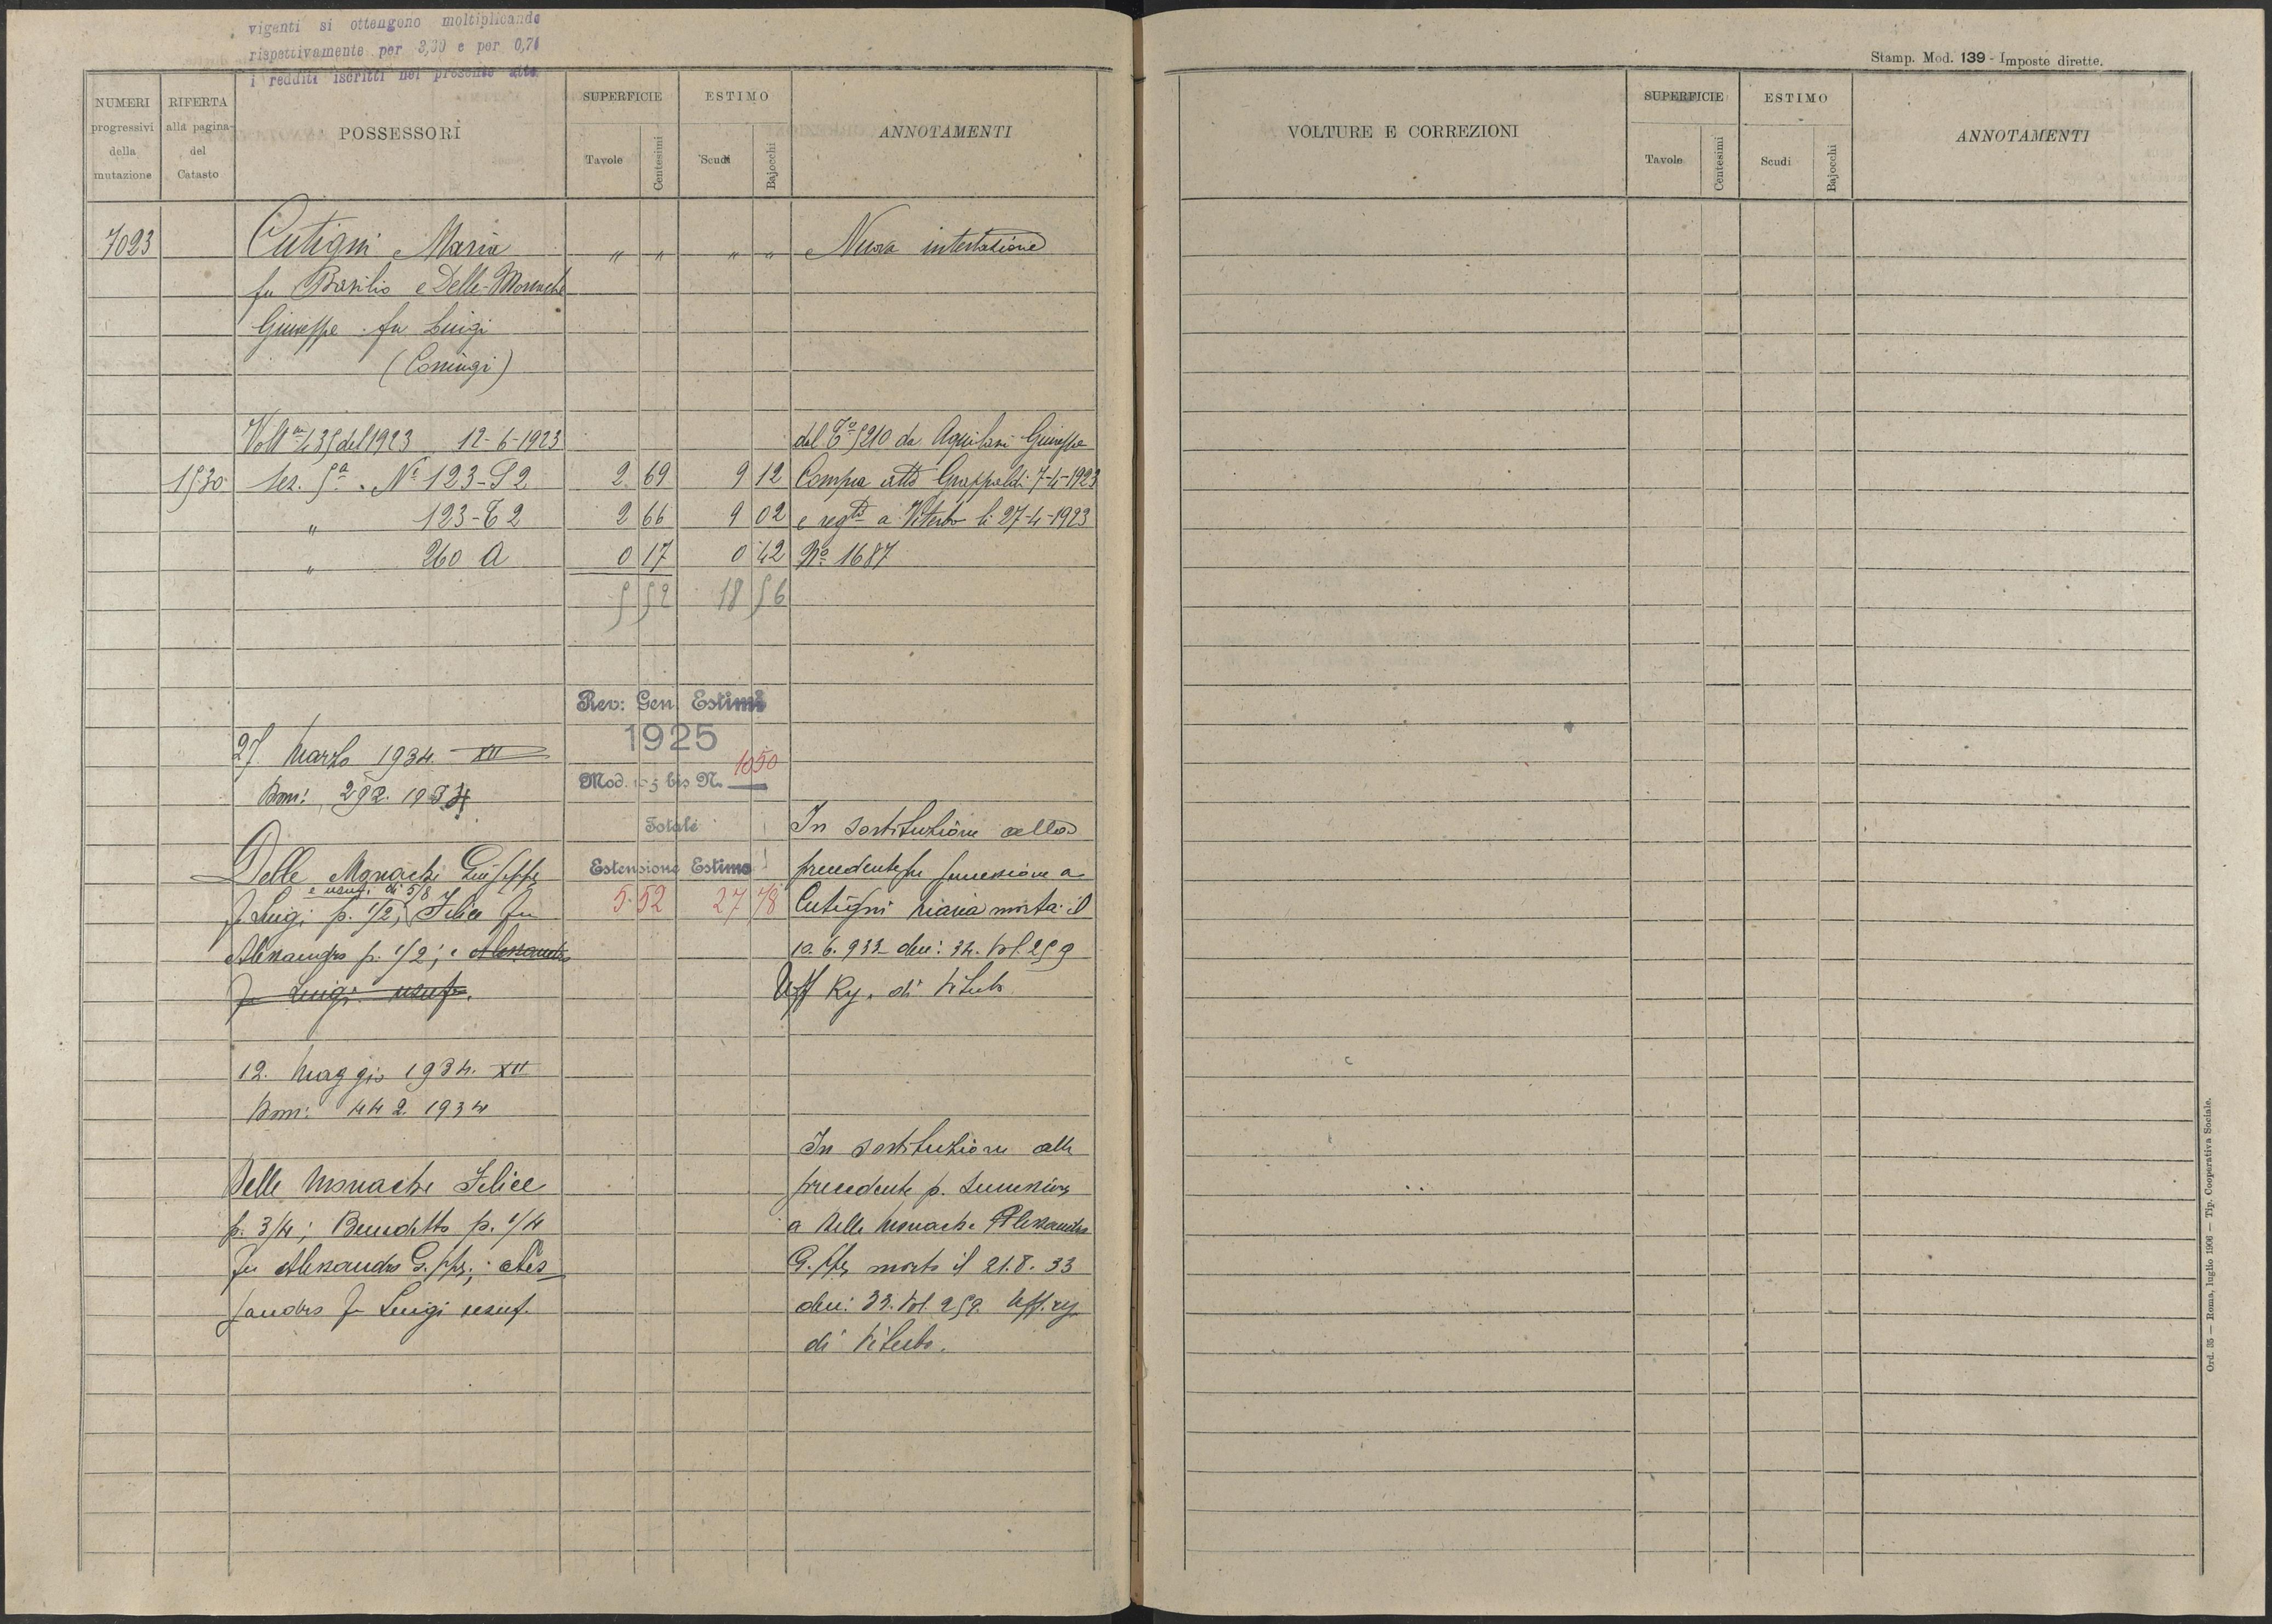 viganti si ottengono moltiplicando
rispettivamente per 3,30 e per 0,71
i redditi iscritti nel presente atto.
NUMERI progressivi della mutazione
RIFERTA alla pagina del Catasto
POSSESSORI
SUPERFICIE
Tavole
Centesimi
ESTIMO
Scudi
Bajocchi
ANNOTAMENTI
7023 Cutigni Maria " " " " Nuova intestazione
fu Basilio e Delle-Monache
Giuseppe fu Luigi
(Coniugi)
Voltª 435 del 1923 12-6-1923 dal T° 5210 da Aquilani Giuseppe
1530 Sez. 5ª N° 123-S2 2 69 9 12 Compra atto Grappaldi 7-4-1923
" 123-T2 2 66 9 02 e regto a Viterbo li 27-4-1923
" 260 A 0 17 0 42 N° 1687
5 52 18 56
Rev: Gen. Estimi
1925
Mod. 105 bis N. 1050
27 Marzo 1934 XII
Dom: 292. 1934
Totale
Estensione Estimo
5.52 27 78
Delle Monache Giuseppe
e usuf. di 5/8
fu Luigi p. 1/2; Felice fu
Alessandro p. 1/2; e Alessandro
fu Luigi usuf.
In sostituzione alla
precedente per successione a
Cutigni Maria morta il
10.6.933 den: 34. Vol. 259
Uff Reg. di Viterbo
12. Maggio 1934. XII
Dom: 442. 1934
Delle Monache Felice
p. 3/4; Benedetto p. 1/4
fu Alessandro G.ppe; Ales
sandro fu Luigi usuf.
In sostituzione alla
precedente p. successione
a Delle Monache Alessandro
G.ppe morto il 21.8.33
den: 33. Vol. 259. Uff. reg.
di Viterbo.
Stamp. Mod. 139 - Imposte dirette.
VOLTURE E CORREZIONI
SUPERFICIE
Tavole
Centesimi
ESTIMO
Scudi
Bajocchi
ANNOTAMENTI
Ord. 35 — Roma, luglio 1906 — Tip. Cooperativa Sociale.